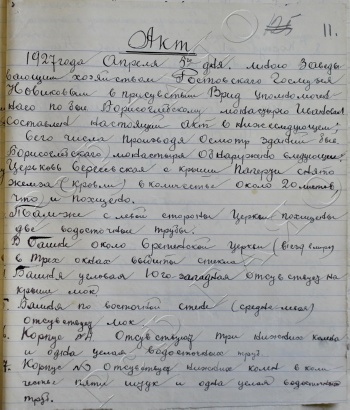 11.
Акт
1927 года Апреля 5го дня. мною Заведы
вающим хозяйством Ростовского Госмузея
Новиковым в присутствии Врид уполномочен
наго по быв Борисоглебскому монастырю Ивановым
Составлен настоящий акт в нижеследующем:
Сего числа производя осмотр зданий быв.
Борисоглебского монастыря обнаружено следующее:
Церковь Сретенская с крыши Паперти снято
железа (кровли) в количестве около 20 листов,
что и похищено.
также с левой стороны Церкви похищены
две водосточных трубы.
В Башне около Сретенской Церкви
в трех окнах выбиты стекла
Башня угловая Юго-западная отсутствует на
крыше люк
Башня по восточной стене (средне-левая)
отсутствует люк.
6. Корпус отсутствуют три нижних колена
и одна целая водосточных труб.
7. Корпус отсутствует нижних колен в коли
честве пяти штук и одна целая водосточных
труб.